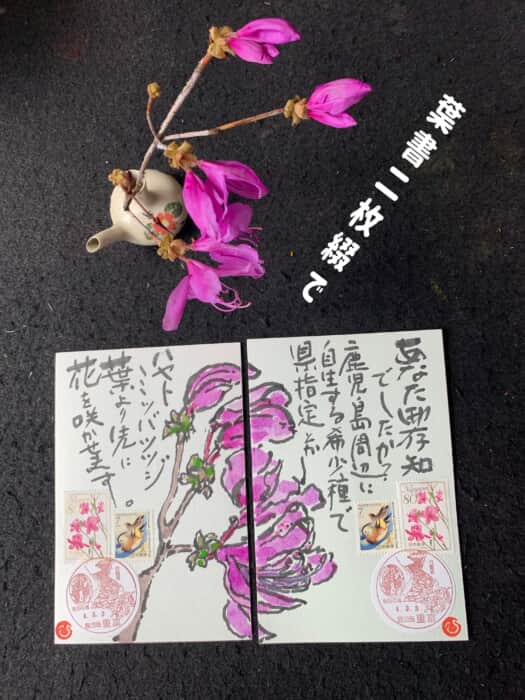 葉書二枚綴で
あなた御存知
でしたか?
鹿児島周辺に
自生する希少種で
県指定
ハヤト
ミツバツツジ
葉より先に
花を咲かせます。
80
80
4.3.3
4.3.3